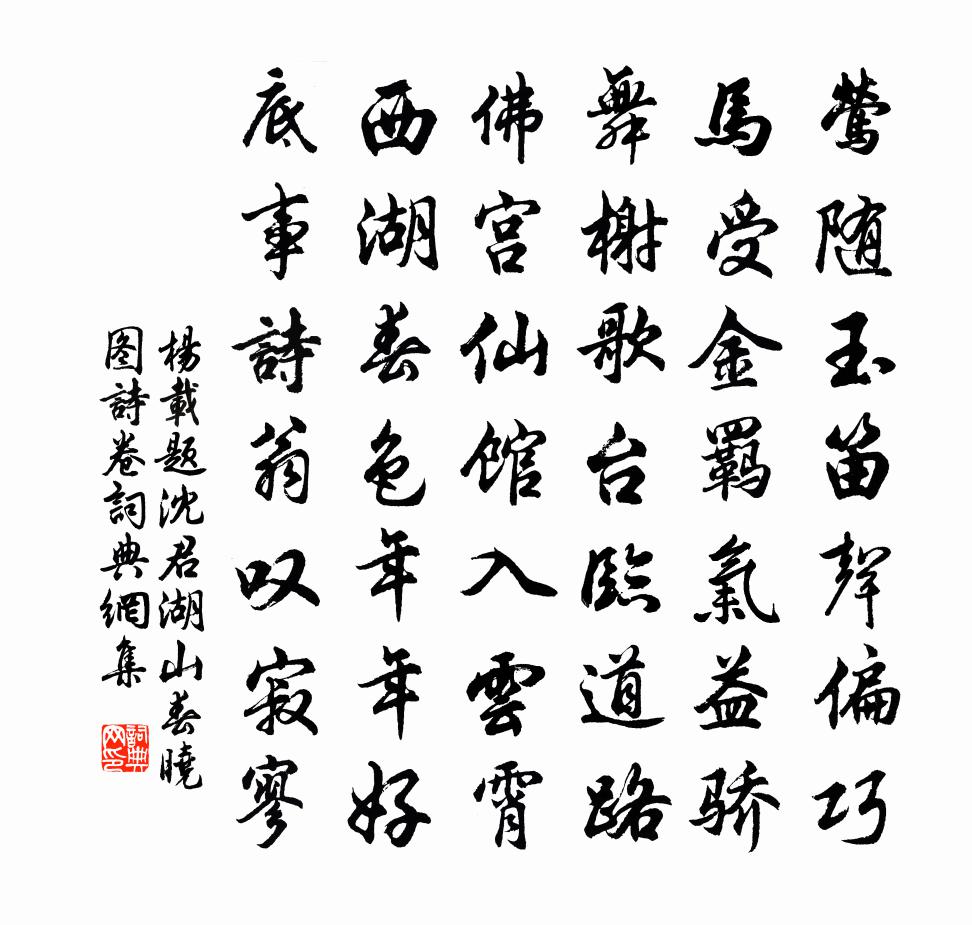 鶯随玉笛聲偏巧
馬受金羈氣益骄
舞榭歌台臨道路
佛宫仙馆入雲霄
西湖春色年年好
底事詩翁叹寂寥
楊載題沈君湖山春曉
图詩卷詞典網集
詞典网印